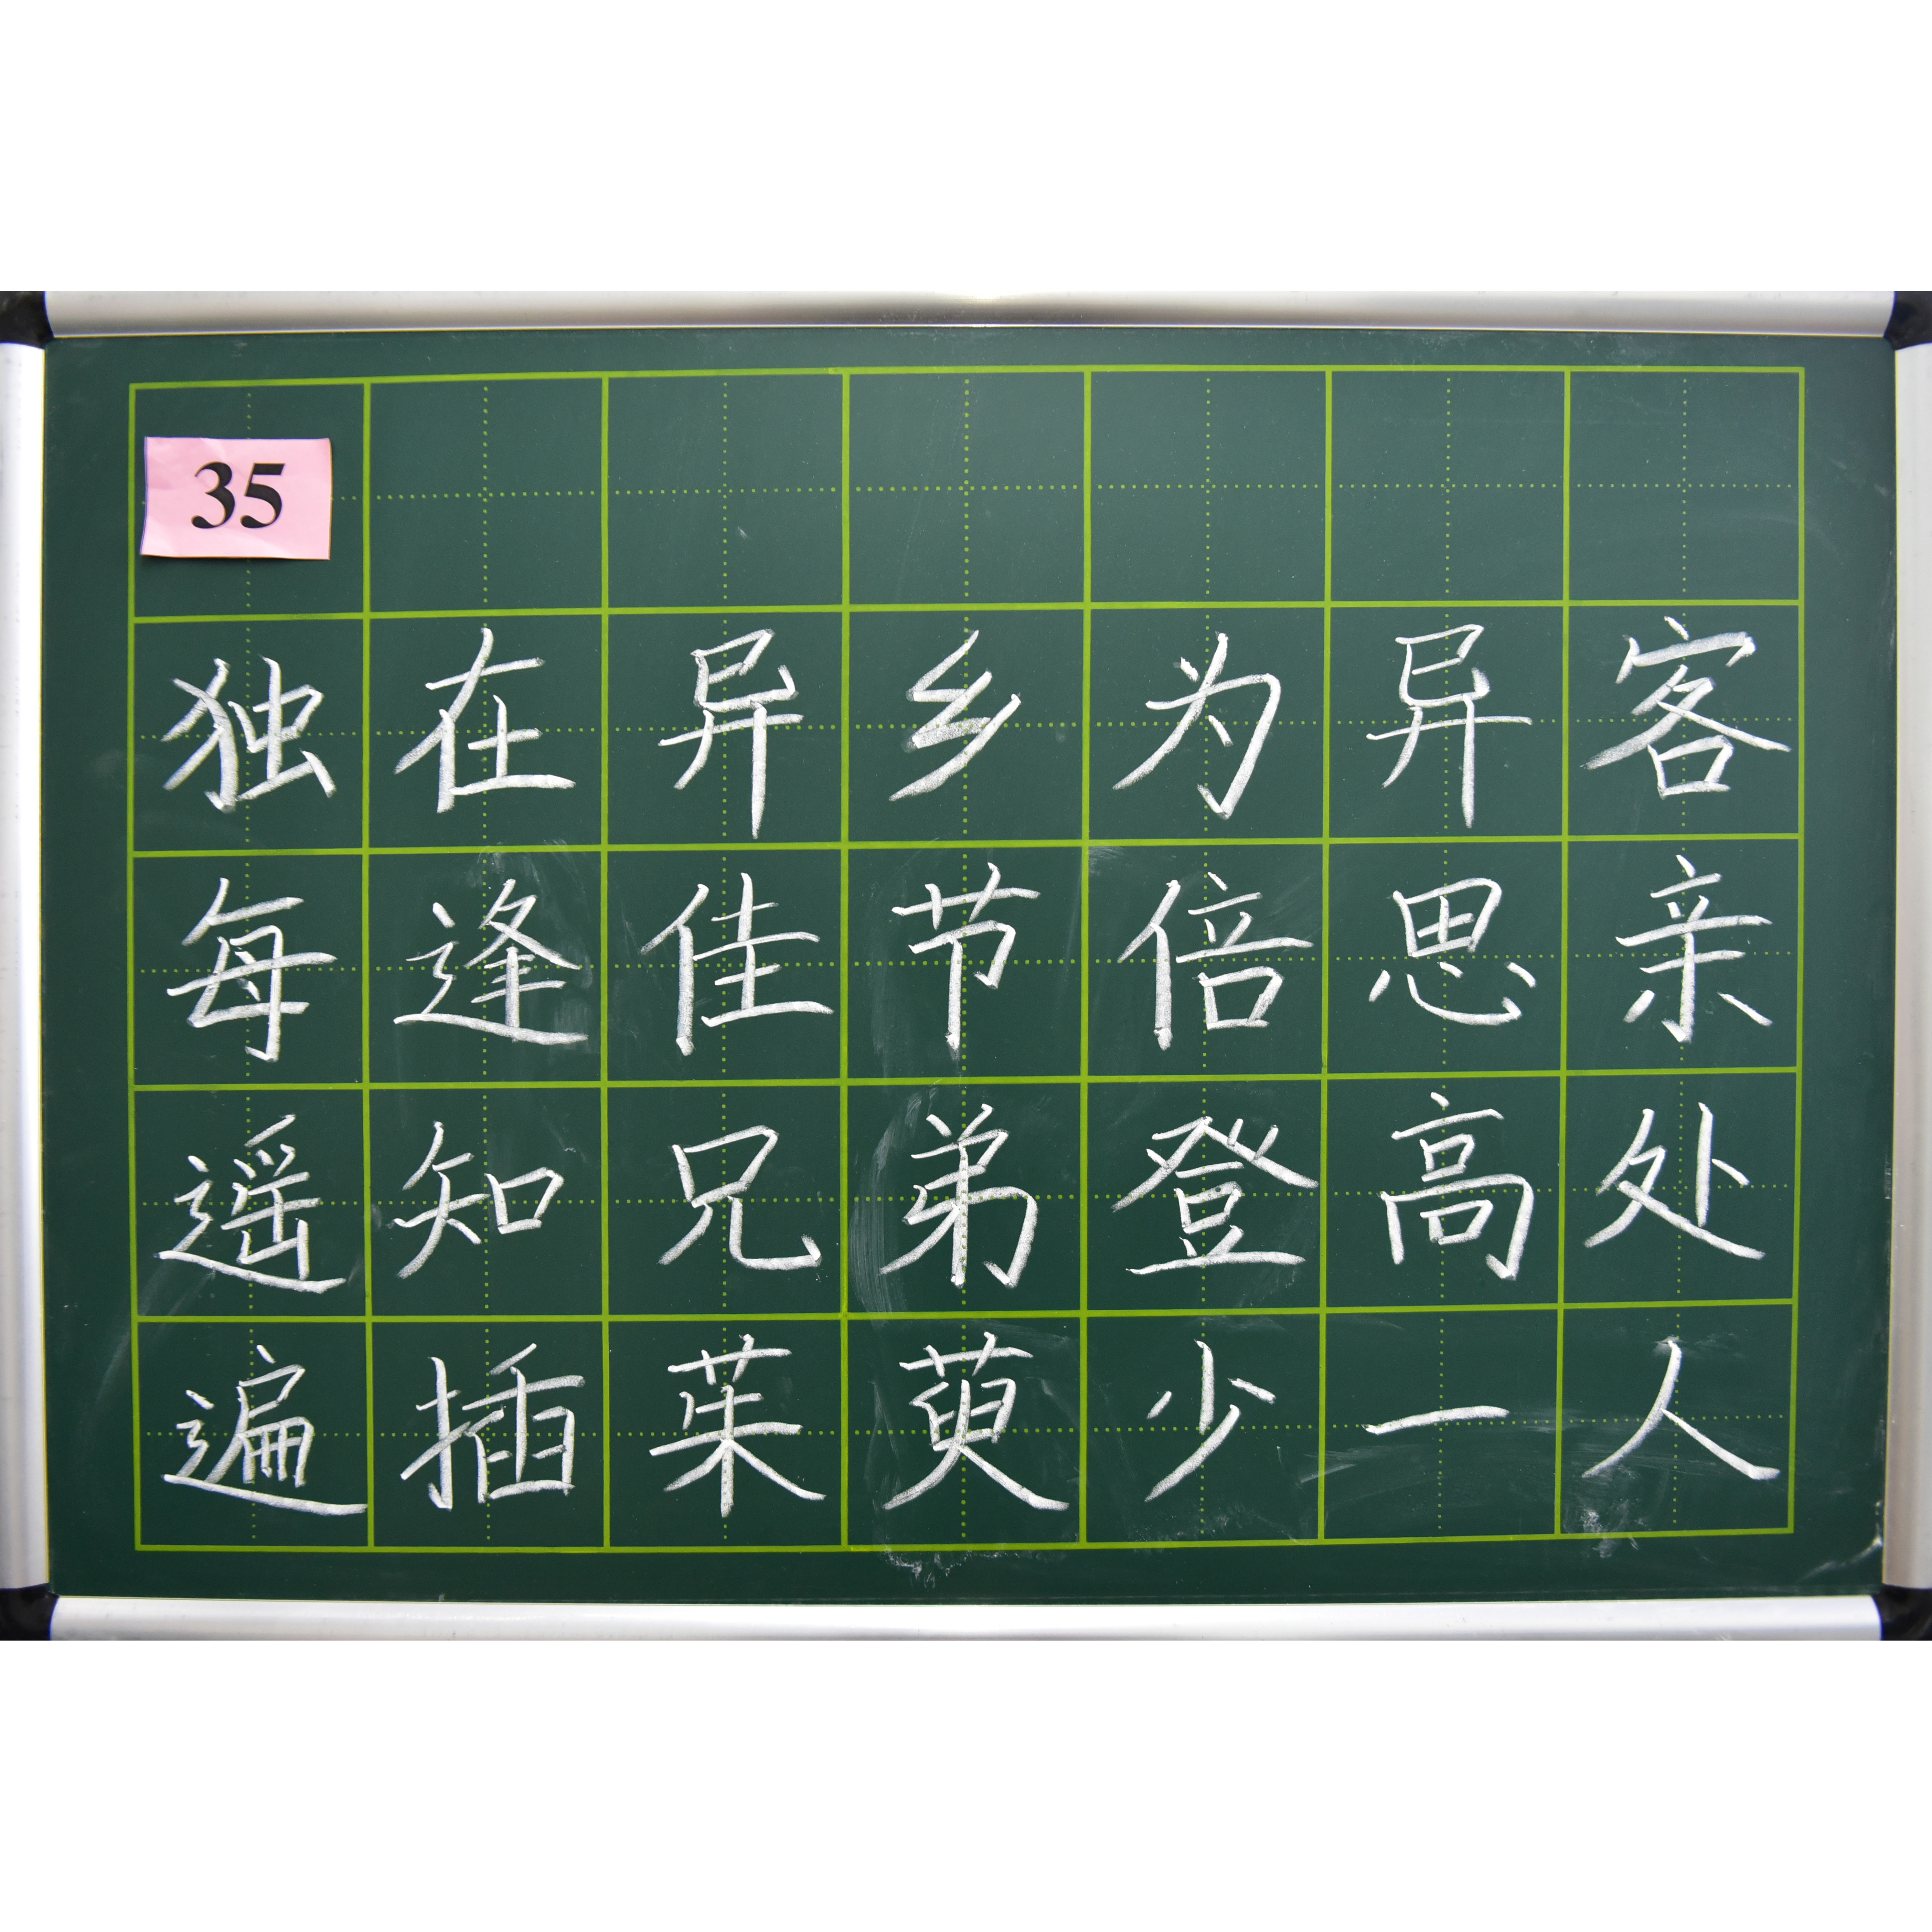 35
独在异乡为异客
每逢佳节倍思亲
遥知兄弟登高处
遍插茱萸少一人